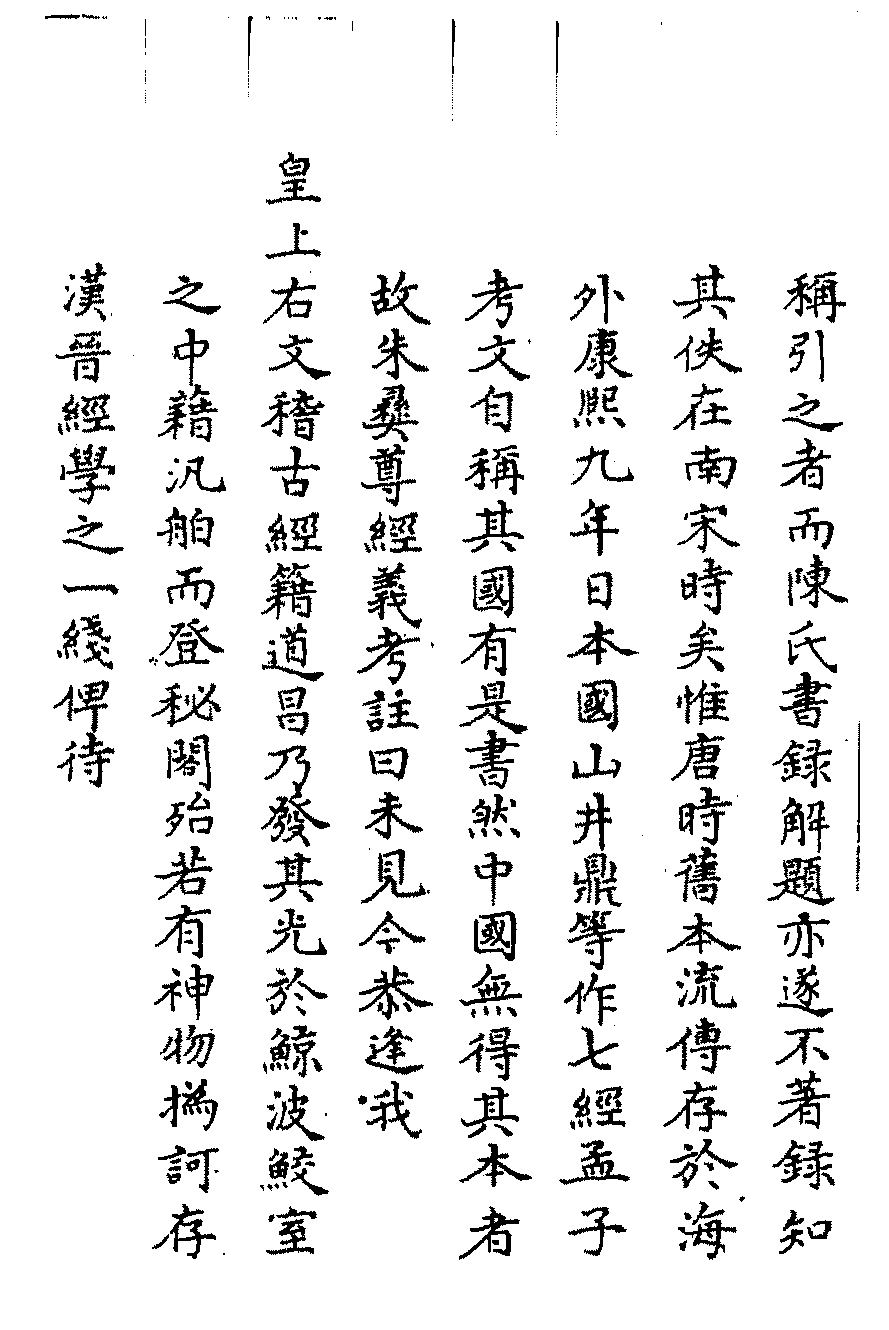 稱引之者而陳氏書録解題亦遂不著録知
其佚在南宋時矣惟唐時舊本流傳存於海
外康熙九年日本國山井鼎等作七經孟子
考文自稱其國有是書然中國無得其本者
故朱彛尊經義考註曰未見今恭逢我
皇上右文稽古經籍道昌乃發其光於鯨波鮫室
之中藉汎舶而登秘閣殆若有神物撝訶存
漢晉經學之一綫俾待